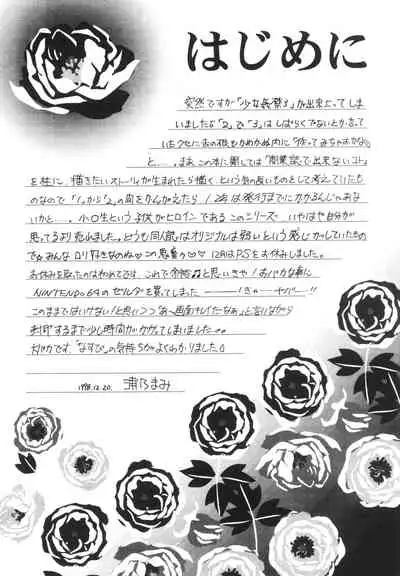 はじめに
突然ですが「少女長襦3」が出来上ってしま
いましたな「2」で「3」はしばらくでないとか言って
いたクセに舌の根もかわかぬ内に「作ってみちゃおかな」
と…。まあ、この本に関しては「商業誌で出来ないコト」
を核に、描きたいストーリィが生まれたら描く、という気の長いものとして考えていたも
のなので「1」から「2」の間をかんがえたら1年は発行までにかかるんじゃあな
いかと…。小〇生という子供がヒロインであるこのシリーズ、いやはや自分が
思ってるより売れました。どうも同人誌はオリジナルは弱いという感じがしていたもの
で。みんなロリ好きなのね♡この悪魔め♡♡ 12月はP.S.をお休みしました。
お休みを取ったのは初めてです。これで余裕♪と思いきや!おバカな私に
NINTENDO64のゼルダを買ってしまった――!きゃーヤバー!!
このままではいけない!と思いつつ「あ〜画面がキレイだなぁ」と言いながら
入稿するまで少し時間がかかってしまいました。
大バカです。「なすび」の気持ちがよくわかりました。
1998.12.20. 浦乃まみ